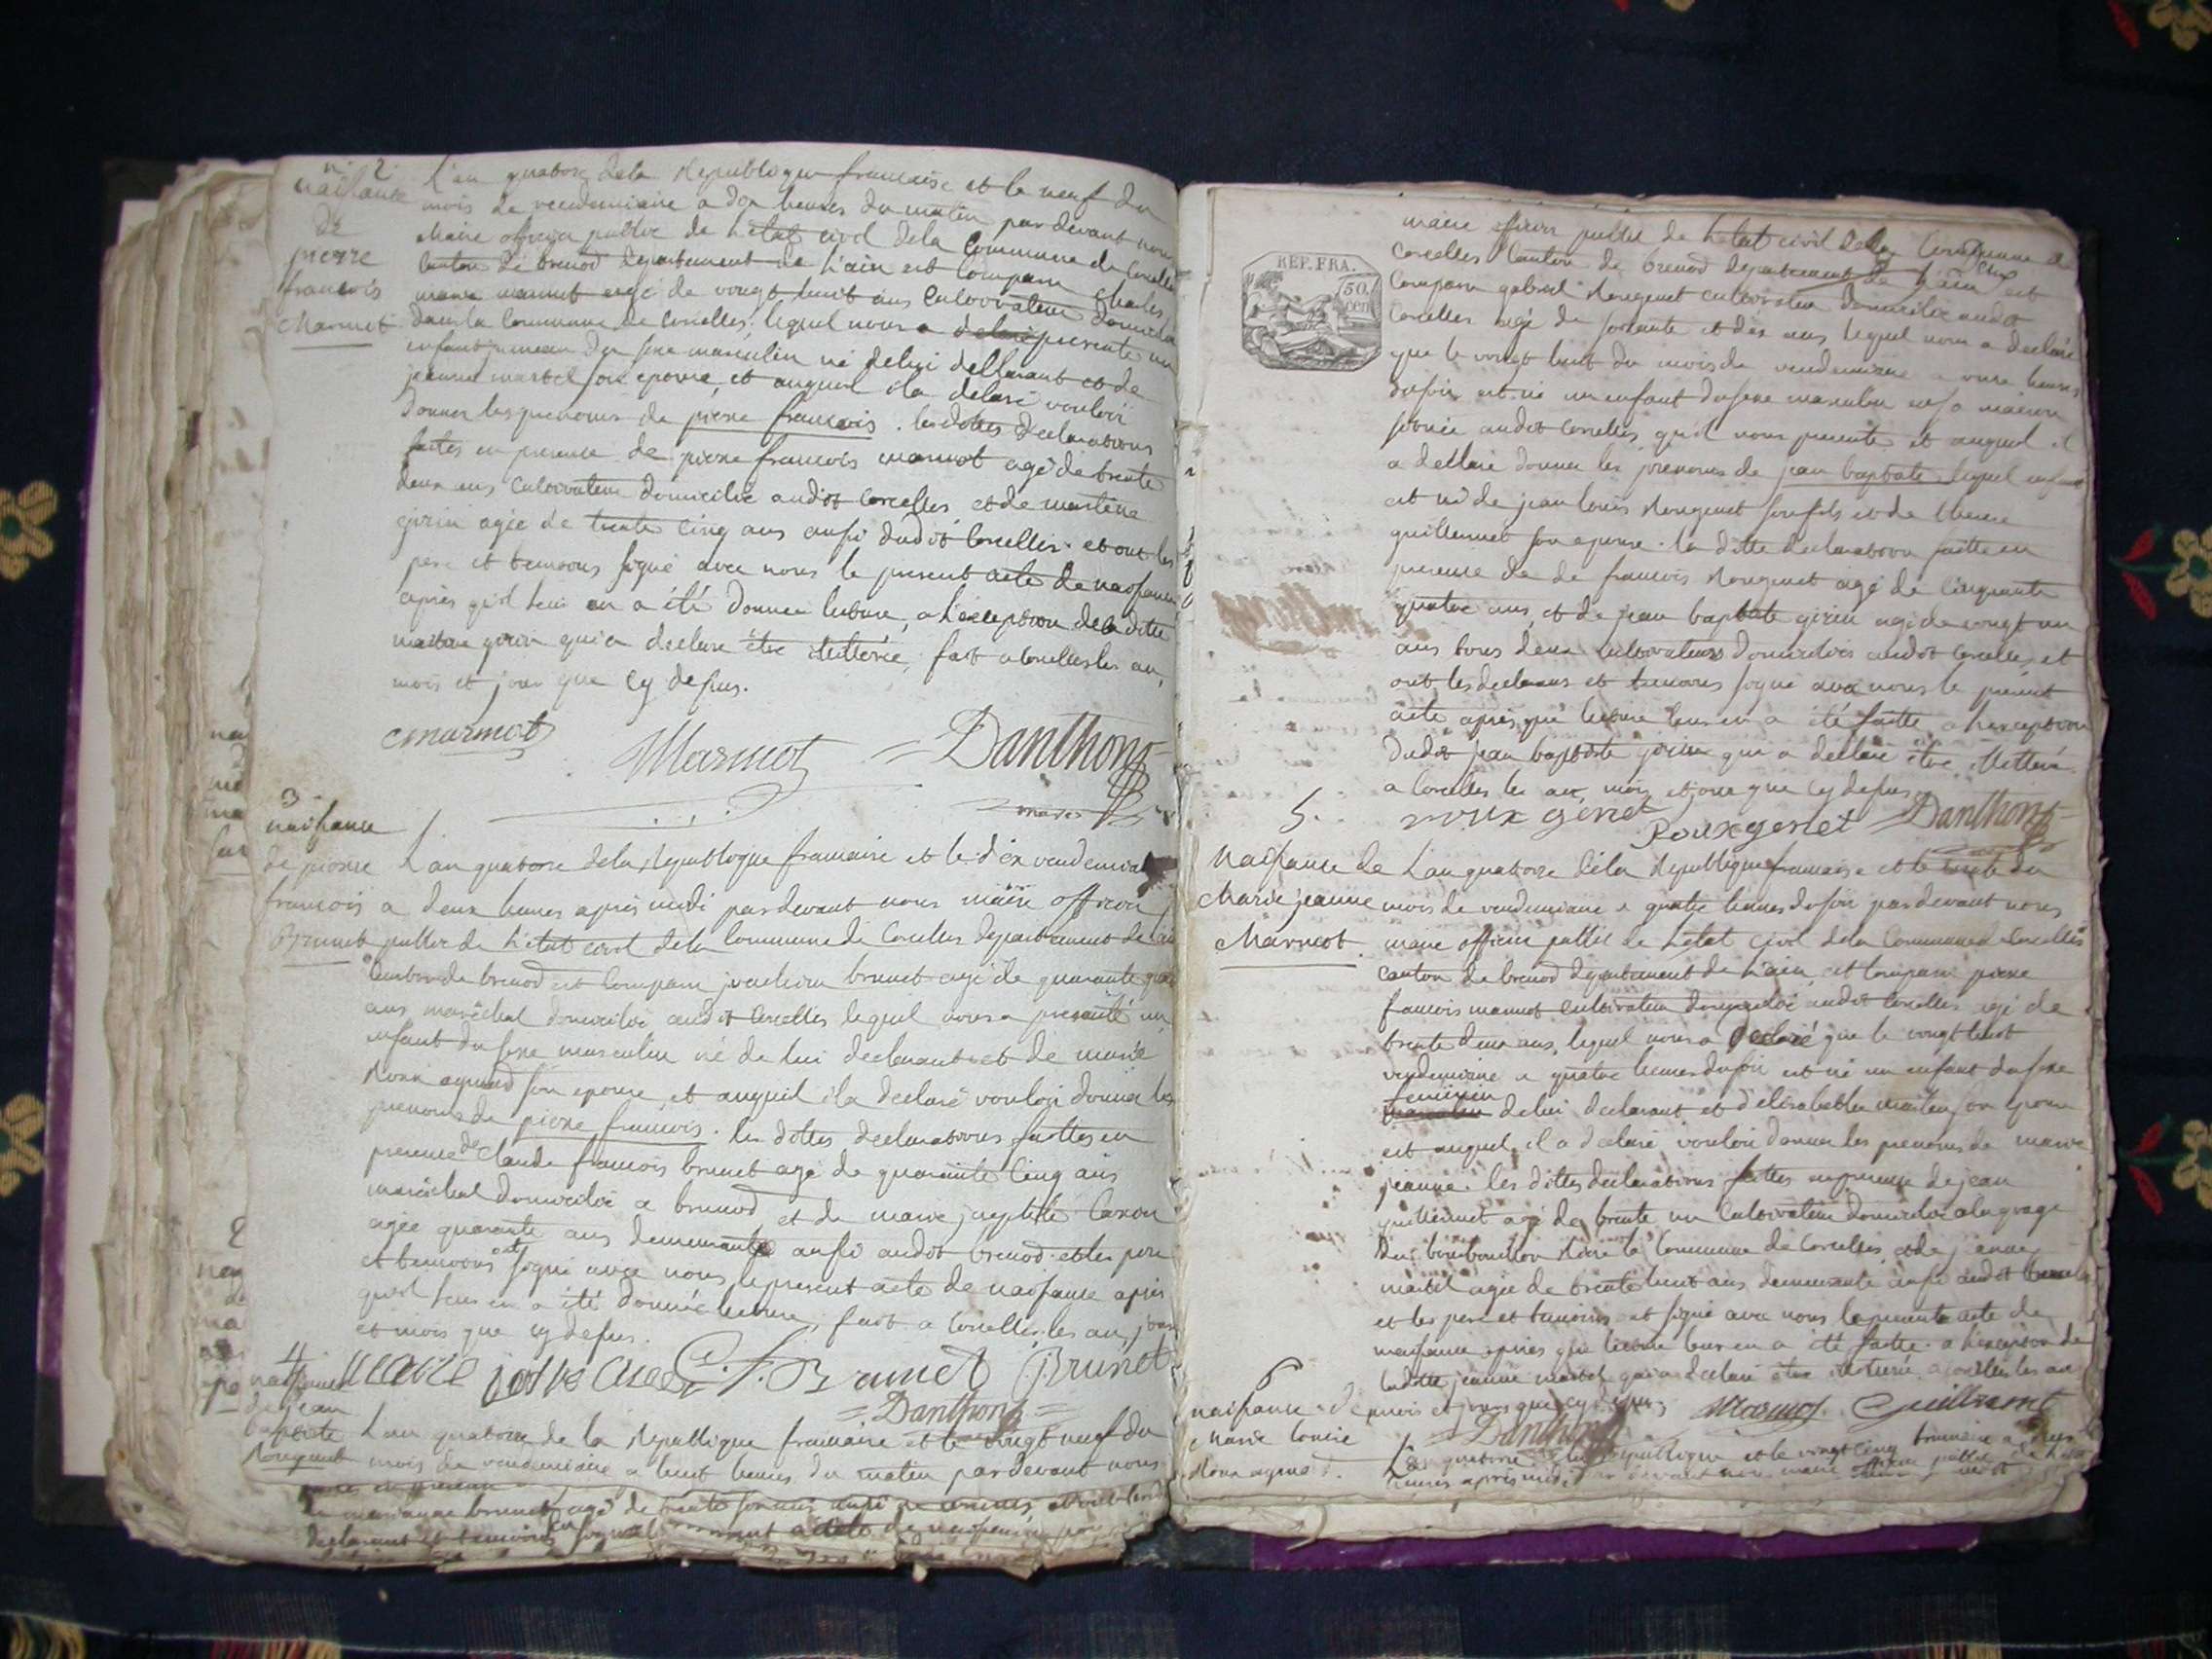 n° 2
naissance
de
pierre
francois
Marmet
L'an quatorze de la Republique francaise et le neuf du
mois de vendemiaire a dix heures du matin par devant nous
Maire officier public de l'etat civil de la Commune de Corcelles
Canton de brenod departement de l'ain est Comparu Charles
marie marmet agé de vingt huit ans Cultivateur domicilié
dans la Commune de Corcelles, lequel nous a presenté un
enfant jumeau du sexe masculin né de lui declarant et de
jeanne martel son epouse, et auquel il a delaré vouloir
donner les prenoms de pierre francois. les dittes declarations
faites en presence de pierre francois marmet agé de trente
deux ans Cultivateur domicilié audit Corcelles et de
girin agée de trente Cinq ans aussi dudit Corcelles. et ont les
pere et temoins signé avec nous le present acte de naissance
après qu'il leur en a été donnée lecture, a l'exception de la ditte
girin qui a declaré être illitterée, fait a Corcelles les an,
mois et jour que cy dessus.
cmarmet Marmet Danthony
maire
3
naissance
de pierre
francois
Brunet
L'an quatorze de la Republique francaise et le dix vendemiaire
a deux heures après midi par devant nous maire officier
public de l'etat civil de la Commune de Corcelles departement de l'ain
Canton de brenod est Comparu joachim brunet agé de quarante
ans maréchal domicilié audit Corcelles lequel nous a presenté un
enfant du sexe masculin né de lui declarant et de marie
Roux aymard son epouse, et auquel il a declaré vouloir donner les
prenoms de pierre francois. les dittes declarations faittes en
presence de Claude francois brunet agé de quarante Cinq ans
maréchal domicilié a brenod et de marie josephte
agée quarante ans demeurante aussi audit brenod. et les pere
et temoins ont signé avec nous le present acte de naissance après
qu'il leur en a été donnée lecture, fait a Corcelles, les an, jour
et mois que cy dessus.
Marie C. f. Brunet Brunet
Danthony
4
naissance
de jean
baptiste
Rougemet
L'an quatorze de la Republique francaise et le vingt neuf du
mois de vendemiaire a huit heures du matin par devant nous
declarant et temoins
REP. FRA.
50
cen
maire officier public de l'etat civil de la Commune de
Corcelles Canton de brenod departement de l'ain est
Comparu gabriel Rougemet Cultivateur domicilié audit
Corcelles agé de soixante et dix ans lequel nous a declaré
que le vingt huit du mois de vendemiaire a onze heures
du soir est né un enfant du sexe masculin en sa maison
située audit Corcelles, qu'il nous presente et auquel il
a declaré donner les prenoms de jean baptiste lequel enfant
est né de jean louis Rougemet son fils et de therese
guillermet son epouse. la ditte declaration faitte en
presence de de francois Rougemet agé de Cinquante
quatre ans, et de jean baptiste girin agé de vingt un
ans tous deux Cultivateurs domiciliés audit Corcelles, et
ont les declarans et temoins signé avec nous le present
acte après que lecture leur en a été faitte a l'exception
dudit jean baptiste girin qui a declaré être illitteré.
a Corcelles les an, mois et jour que cy dessus
rouxgenet Rouxgenet Danthony
5.
Naissance de
Marie jeanne
Marmet
L'an quatorze de la Republique francaise et le trente du
mois de vendemiaire a quatre heures du soir par devant nous
maire officier public de l'etat civil de la Commune de Corcelles
Canton de brenod departement de l'ain, est Comparu pierre
francois marmet Cultivateur domicilié audit Corcelles agé de
trente deux ans, lequel nous a declaré que le vingt huit
vendemiaire a quatre heures du soir est né un enfant du sexe
feminin
masculin de lui declarant et d'elisabethe son epouse
et auquel il a declaré vouloir donner les prenoms de marie
jeanne. les dittes declarations faittes en presence de jean
guillermet agé de trente un Cultivateur domicilié a la grange
du Commune de Corcelles, et de jeanne
martel agée de trente huit ans demeurante aussi audit
et les pere et temoins ont signé avec nous le present acte de
naissance après que lecture leur en a été faitte. a l'exception de
laditte jeanne martel qui a declaré être illitterée, a Corcelles les an
mois et jours que cy dessus Marmet Guillermet
Danthony
6
naissance de
Marie Louise
Roux aymard.
L'an quatorze de la Republique et le vingt Cinq brumaire a
heures après midi par devant nous maire officier public de l'etat